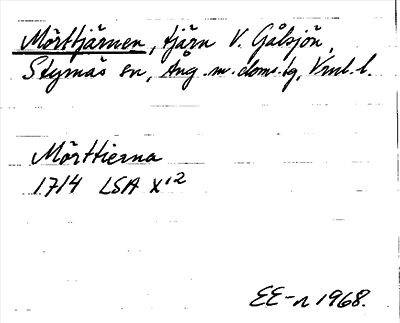 Mörttjärnen, tjärn V. Gålsjön,
Styrnäs sn, Ång. m. doms. tg, Vnrl. l.
Mörttierna
1714 LSA X¹²
EE-n 1968.